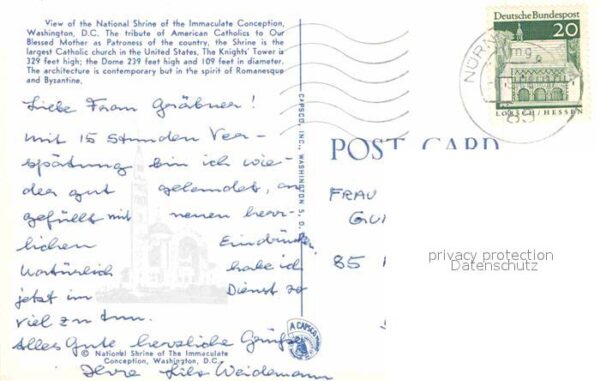 View of the National Shrine of the Immaculate Conception,
Washington, D.C. The tribute of American Catholics to Our
Blessed Mother as Patroness of the country, the Shrine is the
largest Catholic church in the United States. The Knights' Tower is
329 feet high; the Dome 239 feet high and 109 feet in diameter.
The architecture is contemporary but in the spirit of Romanesque
and Byzantine.
Liebe Frau Gräbner!
Mit 15 Stunden Ver-
spätung bin ich wie-
der gut gelandet, an
gefüllt mit neuen herr-
lichen Eindrücken.
Natürlich habe ich
jetzt im Dienst so
viel zu tun.
Alles Gute herzliche Grüße
© National Shrine of the Immaculate
Conception, Washington, D.C.
Ihre Weidemann
CAPSCO, INC., WASHINGTON 5, D.
A CAPSCO
POST CARD
Deutsche Bundespost
20
LORSCH/HESSEN
NÜRN
FRAU
85
privacy protection
Datenschutz